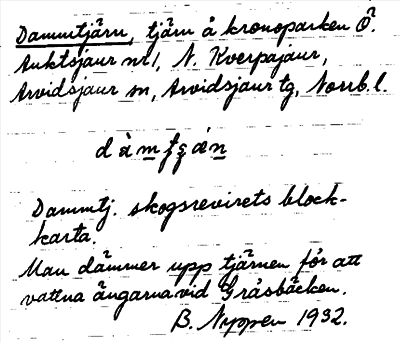 Dammtjärn, tjärn å kronoparken Ö.
Auktsjaur nr 1, N. Kverpajaur,
Arvidsjaur sn, Arvidsjaur tg, Norrb. l.
dàmtʂæn
Dammtj. skogsrevirets block-
karta.
Man dämmer upp tjärnen för att
vattna ängarna vid Gråsbäcken.
B. Nyppen 1932.